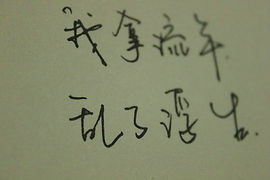 "我拿流年.
乱了浮生.